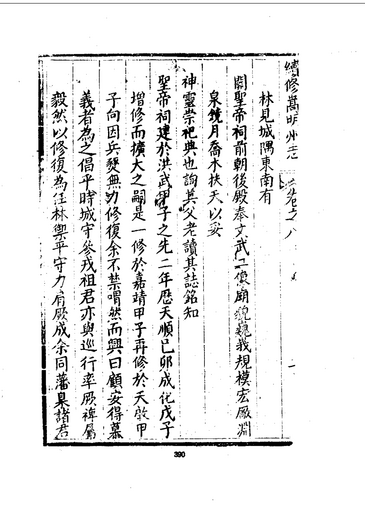 續修嵩明州志 卷之八
林見城隅東南有
關聖帝祠前朝後殿奉文武二像廟貌巍峩規模宏厰淵
泉鏡月喬木扶天以妥
神靈崇祀典也詢其父老讀其誌銘知
聖帝祠建於洪武甲子之先二年歷天順己卯成化戊子
增修而擴大之嗣是一修於嘉靖甲子再修於天啟甲
子向因兵燹無力修復余不禁喟然而興曰顧安得慕
義者為之倡乎時城守參戎祖君亦與巡行率厥裨屬
毅然以修復為任林禦平守力肩厥成余同藩臬諸君
390